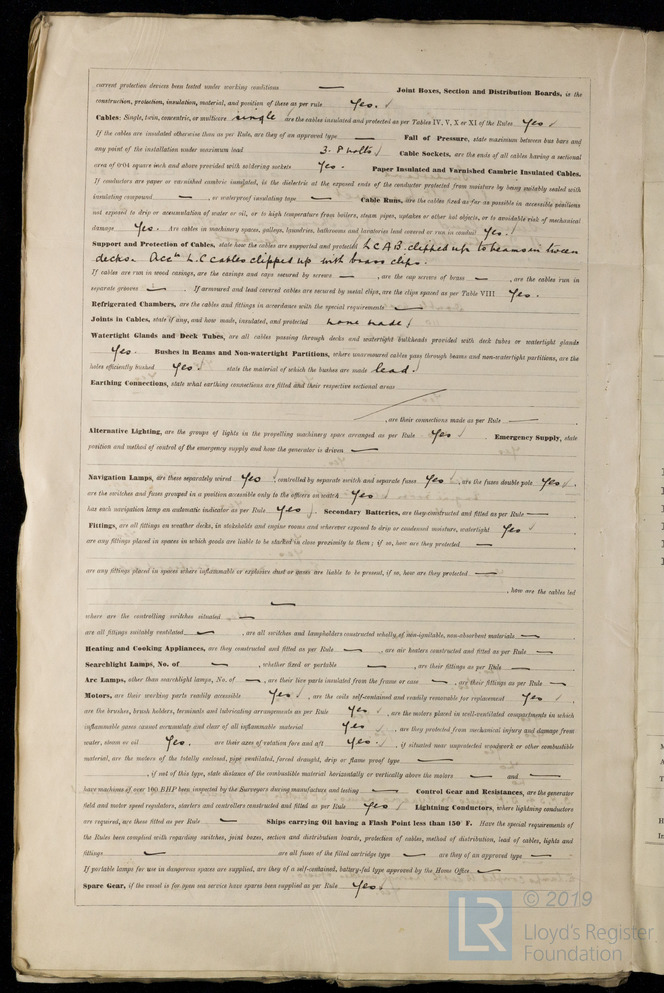 current protection devices been tested under working conditions — Joint Boxes, Section and Distribution Boards, is the
construction, protection, insulation, material, and position of these as per rule Yes.
Cables: Single, twin, concentric, or multicore single are the cables insulated and protected as per Tables IV, V, X or XI of the Rules Yes
If the cables are insulated otherwise than as per Rule, are they of an approved type — Fall of Pressure, state maximum between bus bars and
any point of the installation under maximum load 3.8 volts Cable Sockets, are the ends of all cables having a sectional
area of 0·04 square inch and above provided with soldering sockets Yes. Paper Insulated and Varnished Cambric Insulated Cables.
If conductors are paper or varnished cambric insulated, is the dielectric at the exposed ends of the conductor protected from moisture by being suitably sealed with
insulating compound — , or waterproof insulating tape — Cable Runs, are the cables fixed as far as possible in accessible positions
not exposed to drip or accumulation of water or oil, or to high temperature from boilers, steam pipes, uptakes or other hot objects, or to avoidable risk of mechanical
damage Yes. Are cables in machinery spaces, galleys, laundries, bathrooms and lavatories lead covered or run in conduit Yes.
Support and Protection of Cables, state how the cables are supported and protected L.C.A.B. clipped up to beams in tween
decks. Accn L.C cables clipped up with brass clips.
If cables are run in wood casings, are the casings and caps secured by screws — , are the cap screws of brass — , are the cables run in
separate grooves — . If armoured and lead covered cables are secured by metal clips, are the clips spaced as per Table VIII Yes.
Refrigerated Chambers, are the cables and fittings in accordance with the special requirements —
Joints in Cables, state if any, and how made, insulated, and protected none made
Watertight Glands and Deck Tubes, are all cables passing through decks and watertight bulkheads provided with deck tubes or watertight glands
Yes. Bushes in Beams and Non-watertight Partitions, where unarmoured cables pass through beams and non-watertight partitions, are the
holes efficiently bushed Yes. state the material of which the bushes are made lead.
Earthing Connections, state what earthing connections are fitted and their respective sectional areas
, are their connections made as per Rule —
Alternative Lighting, are the groups of lights in the propelling machinery space arranged as per Rule Yes . Emergency Supply, state
position and method of control of the emergency supply and how the generator is driven —
Navigation Lamps, are these separately wired Yes , controlled by separate switch and separate fuses Yes , are the fuses double pole Yes
are the switches and fuses grouped in a position accessible only to the officers on watch Yes
has each navigation lamp an automatic indicator as per Rule Yes . Secondary Batteries, are they constructed and fitted as per Rule —
Fittings, are all fittings on weather decks, in stokeholds and engine rooms and wherever exposed to drip or condensed moisture, watertight Yes
are any fittings placed in spaces in which goods are liable to be stacked in close proximity to them ; if so, how are they protected —
are any fittings placed in spaces where inflammable or explosive dust or gases are liable to be present, if so, how are they protected —
, how are the cables led
—
where are the controlling switches situated —
are all fittings suitably ventilated — , are all switches and lampholders constructed wholly of non-ignitable, non-absorbent materials —
Heating and Cooking Appliances, are they constructed and fitted as per Rule — , are air heaters constructed and fitted as per Rule —
Searchlight Lamps, No. of — , whether fixed or portable — , are their fittings as per Rule —
Arc Lamps, other than searchlight lamps, No. of — , are their live parts insulated from the frame or case — , are their fittings as per Rule —
Motors, are their working parts readily accessible Yes , are the coils self-contained and readily removable for replacement Yes
are the brushes, brush holders, terminals and lubricating arrangements as per Rule Yes , are the motors placed in well-ventilated compartments in which
inflammable gases cannot accumulate and clear of all inflammable material Yes , are they protected from mechanical injury and damage from
water, steam or oil Yes. are their axes of rotation fore and aft Yes. , if situated near unprotected woodwork or other combustible
material, are the motors of the totally enclosed, pipe ventilated, forced draught, drip or flame proof type —
, if not of this type, state distance of the combustible material horizontally or vertically above the motors — and —
have machines if over 100 BHP been inspected by the Surveyors during manufacture and testing — Control Gear and Resistances, are the generator
field and motor speed regulators, starters and controllers constructed and fitted as per Rule Yes Lightning Conductors, where lightning conductors
are required, are these fitted as per Rule — Ships carrying Oil having a Flash Point less than 150° F. Have the special requirements of
the Rules been complied with regarding switches, joint boxes, section and distribution boards, protection of cables, method of distribution, lead of cables, lights and
fittings — are all fuses of the filled cartridge type — are they of an approved type —
If portable lamps for use in dangerous spaces are supplied, are they of a self-contained, battery-fed type approved by the Home Office —
Spare Gear, if the vessel is for open sea service have spares been supplied as per Rule Yes
LR © 2019
Lloyd's Register
Foundation